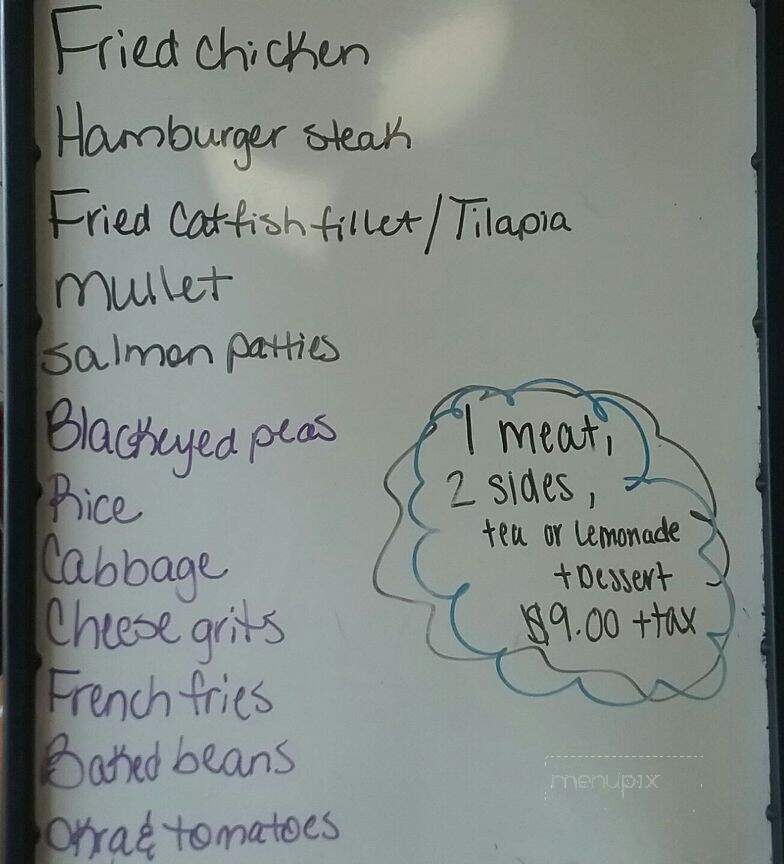 Fried chicken
Hamburger steak
Fried Catfish fillet/Tilapia
mullet
salmon patties
Blackeyed peas
Rice
Cabbage
Cheese grits
French fries
Baked beans
Okra & tomatoes
1 meat,
2 sides,
tea or Lemonade
+ Dessert
$9.00 + tax
menupix